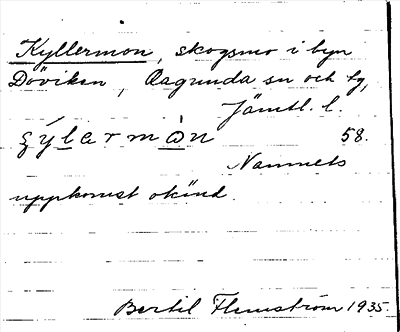 Kyllermon, skogsmo i byn
Döviken, Ragunda sn och tg,
Jämtl. l.
ʒýlɘrmòn 58.
Namnets
uppkomst okänd.
Bertil Flemström 1935.